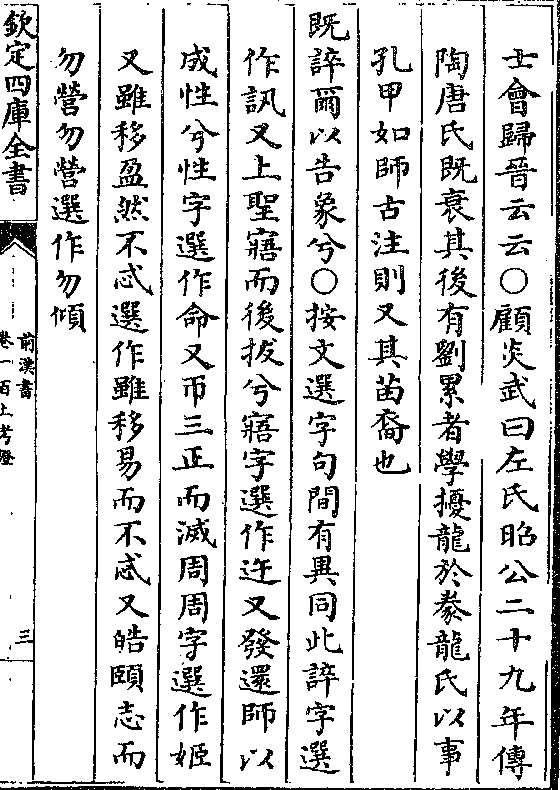 士會歸晉云云○顧炎武曰左氏昭公二十九年傳
陶唐氏既衰其後有劉累者學擾龍於豢龍氏以事
孔甲如師古注則又其苗裔也
既誶爾以告象兮○按文選字句間有異同此誶字選
作訊又上聖寤而後拔兮寤字選作迕又發還師以
成性兮性字選作命又帀三正而滅周周字選作姬
又雖移盈然不忒選作雖移易而不忒又皓頤志而
勿營勿營選作勿傾
欽定四庫全書
前漢書
卷一百上考證
三